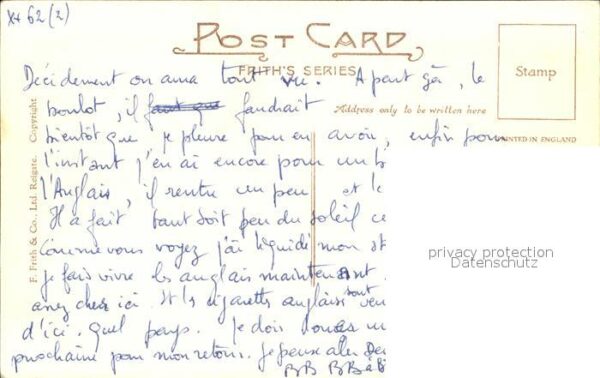 X+ 62 (2)
POST CARD
FRITH'S SERIES
Stamp
Décidement on aura tout vu. A part ça, le
boulot, il faut que faudrait
Address only to be written here
bientôt que je pleure pour en avoir, enfin pour
PRINTED IN ENGLAND
l'instant j'en ai encore pour un
l'Anglais, il rentre un peu et le
Il a fait tant soit peu du soleil ce
Comme vous voyez j'ai liquidé mon st
je fais vivre les anglais maintenant.
assez cher ici. Et les cigarettes anglaises sont
d'ici. Quel pays. Je dois
prochaine pour mon retour. Je pense aller
BB BB
F. Frith & Co., Ltd. Reigate. Copyright
privacy protection
Datenschutz